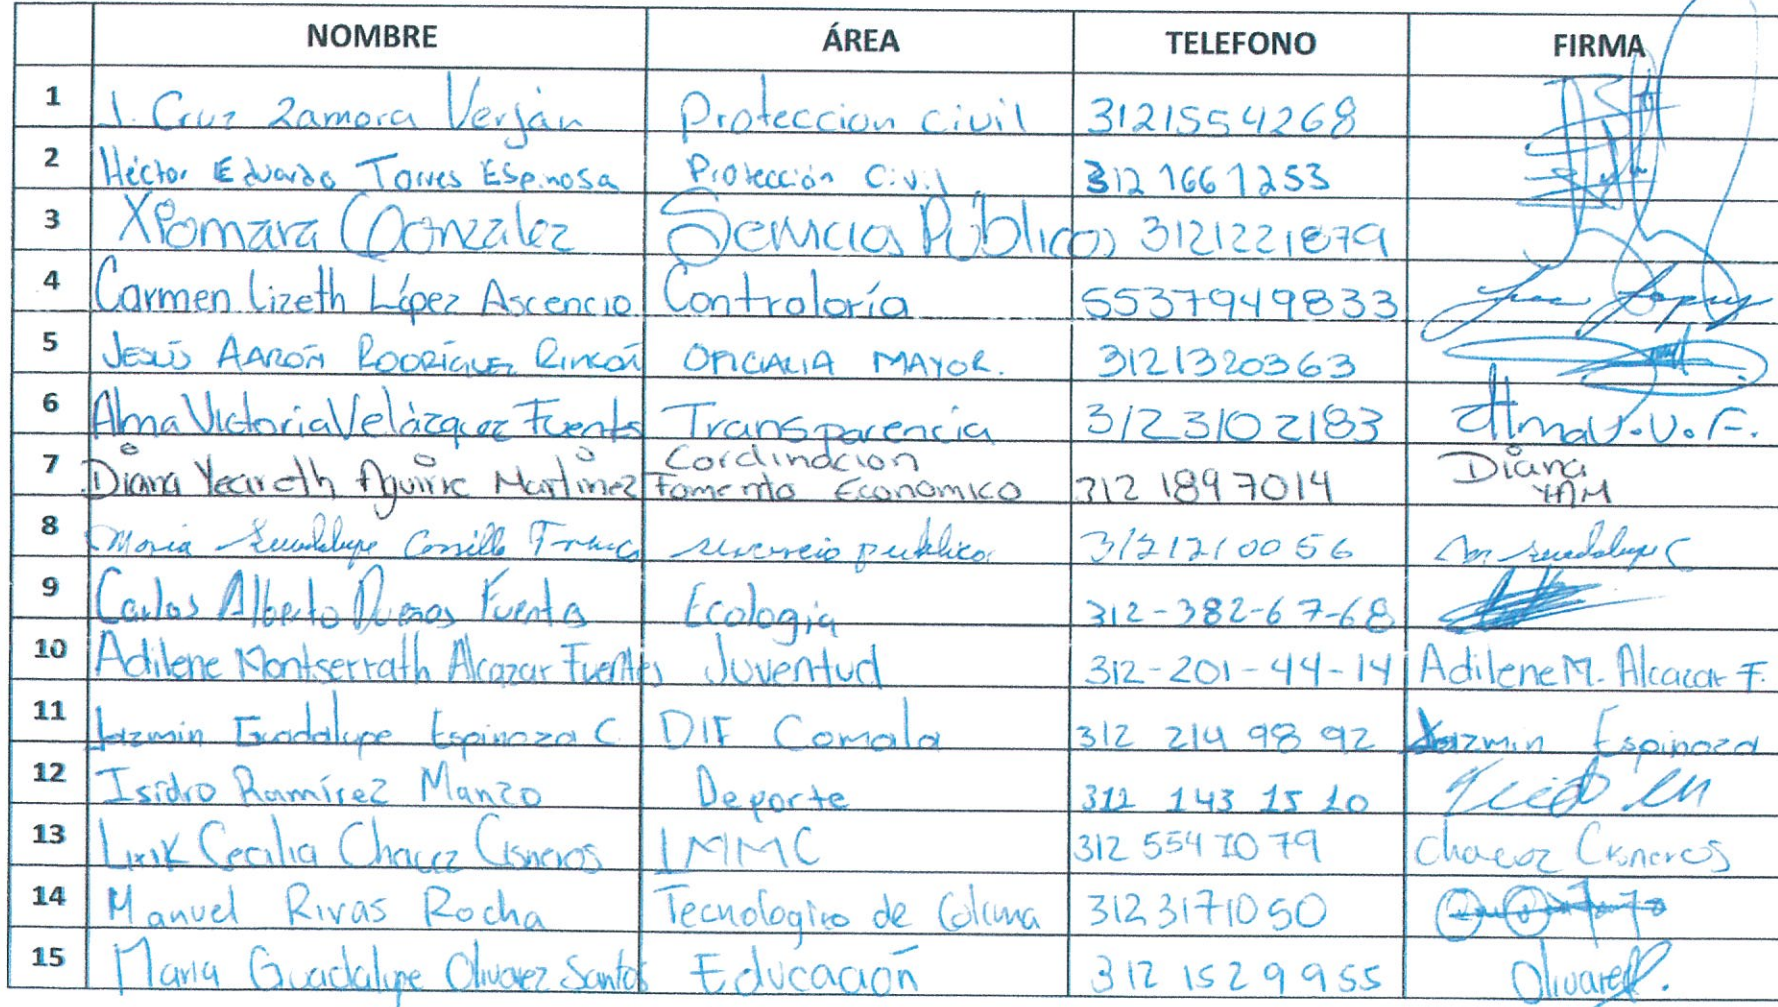 NOMBRE ÁREA TELEFONO FIRMA
1 J. Cruz Zamora Verján Proteccion civil 3121554268
2 Héctor Eduardo Torres Espinosa Protección Civil 312 166 1253
3 XIomara Gonzalez Servicios Públicos 3121221879
4 Carmen Lizeth López Ascencio Contraloría 5537949833
5 JESÚS AARÓN RODRÍGUEZ RINCÓN OFICIALIA MAYOR. 3121320363
6 Alma Victoria Velázquez Fuents Transparencia 3123102183 Alma V.V.F.
7 Diana Yecireth Aguirre Martinez Cordinacion Fomento Economico 312 189 7014 Diana YAM
8 Maria Guadalupe Carrillo servicio publico 3121210056 M. Guadalupe C
9 Carlos Alberto Dueñas Fuentes Ecologia 312-382-67-68
10 Adilene Montserrath Alcazar Fuentes Juventud 312-201-44-14 Adilene M. Alcazar F.
11 Jazmin Guadalupe Espinoza C. DIF Comala 312 214 98 92 Jazmin Espinoza
12 Isidro Ramírez Manzo Deporte 312 143 15 10
13 Cecilia Chavez Cisneros IMMC 312 554 1079 Chavez Cisneros
14 Manuel Rivas Rocha Tecnologico de Colima 3123171050
15 Maria Guadalupe Olivarez Santos Educación 312 152 9955 Olivares.